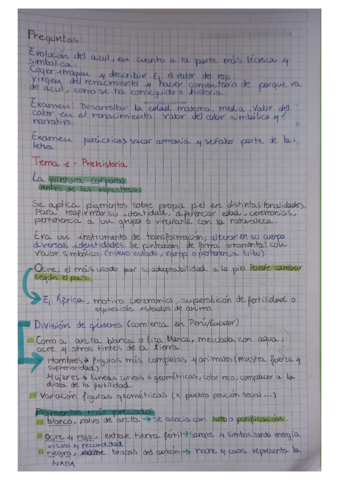 Preguntas:
Evolución del azul, en cuanto a la parte más técnica y
simbólica.
Coger imagen y describir Ej. el valor de rojo
Virgen del renacimiento y hacer comentario de porque va
de azul, como se ha conseguido e historia.
Examen: Desarrollar la edad materna media. Valor del
color en el renacimiento. Valor del color simbólico y
narrativo.
Examen prácticas sacar armonía y señalar parte de la
letra.
Tema 1 - Prehistoria
La pintura corporal
antes de las rupestres
Se aplica pigmentos sobre propia piel en distintas tonalidades.
Para reafirmar su identidad, aparentar edad, ceremonias,
pertenencia a un grupo o vincularla con la naturaleza.
Era un instrumento de transformación, alterar en su cuerpo
diversas identidades. Se pintaban de forma ornamental con
valor simbólico (nuevo cuidado, rango o pertenencia tribu)
Ocre, el más usado por su adaptabilidad a la piel. Puede cambiar
según el país.
Ej. África, motivo ceremonia, superstición de fertilidad o
expresión estados de animo
División de géneros (comienza en Perú/Ecuador)
Como a arcilla blanca o tiza blanca, mezclada con agua,
ocre y otros tintes de la tierra.
Hombres → figuras más complejas y animales (muestra fuerza y
superioridad)
Mujeres → líneas curvas o geométricas, color rojo, comparar a la
diosa de la fertilidad.
Variación figuras geométricas (x pueblo, posición social...)
Pigmentos más preciados
blanco, polvo de arcilla → se asocia con luto o purificación
ocre y rojo, extrae tierra fértil → sangre y simbolizando energía
visual y fecundidad
negro, brasas del carbón → noche y caos, representa la
NADA